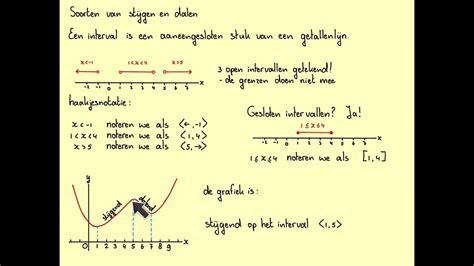 Soorten van stijgen en dalen
Een interval is een aaneengesloten stuk van een getallenlijn.
x<-1 1<x<4 x>5
-2 -1 0 1 2 3 4 5 6 x
3 open intervallen getekend!
- de grenzen doen niet mee
haakjesnotatie:
x<-1 noteren we als ⟨←,-1⟩
1<x<4 noteren we als ⟨1,4⟩
x>5 noteren we als ⟨5,→⟩
Gesloten intervallen? Ja!
1≤x≤4
-2 -1 0 1 2 3 4 5 6 x
1≤x≤4 noteren we als [1,4]
y
stijgend
dalend
1 2 3 4 5 6 7 8 9 x
de grafiek is:
stijgend op het interval ⟨1,5⟩